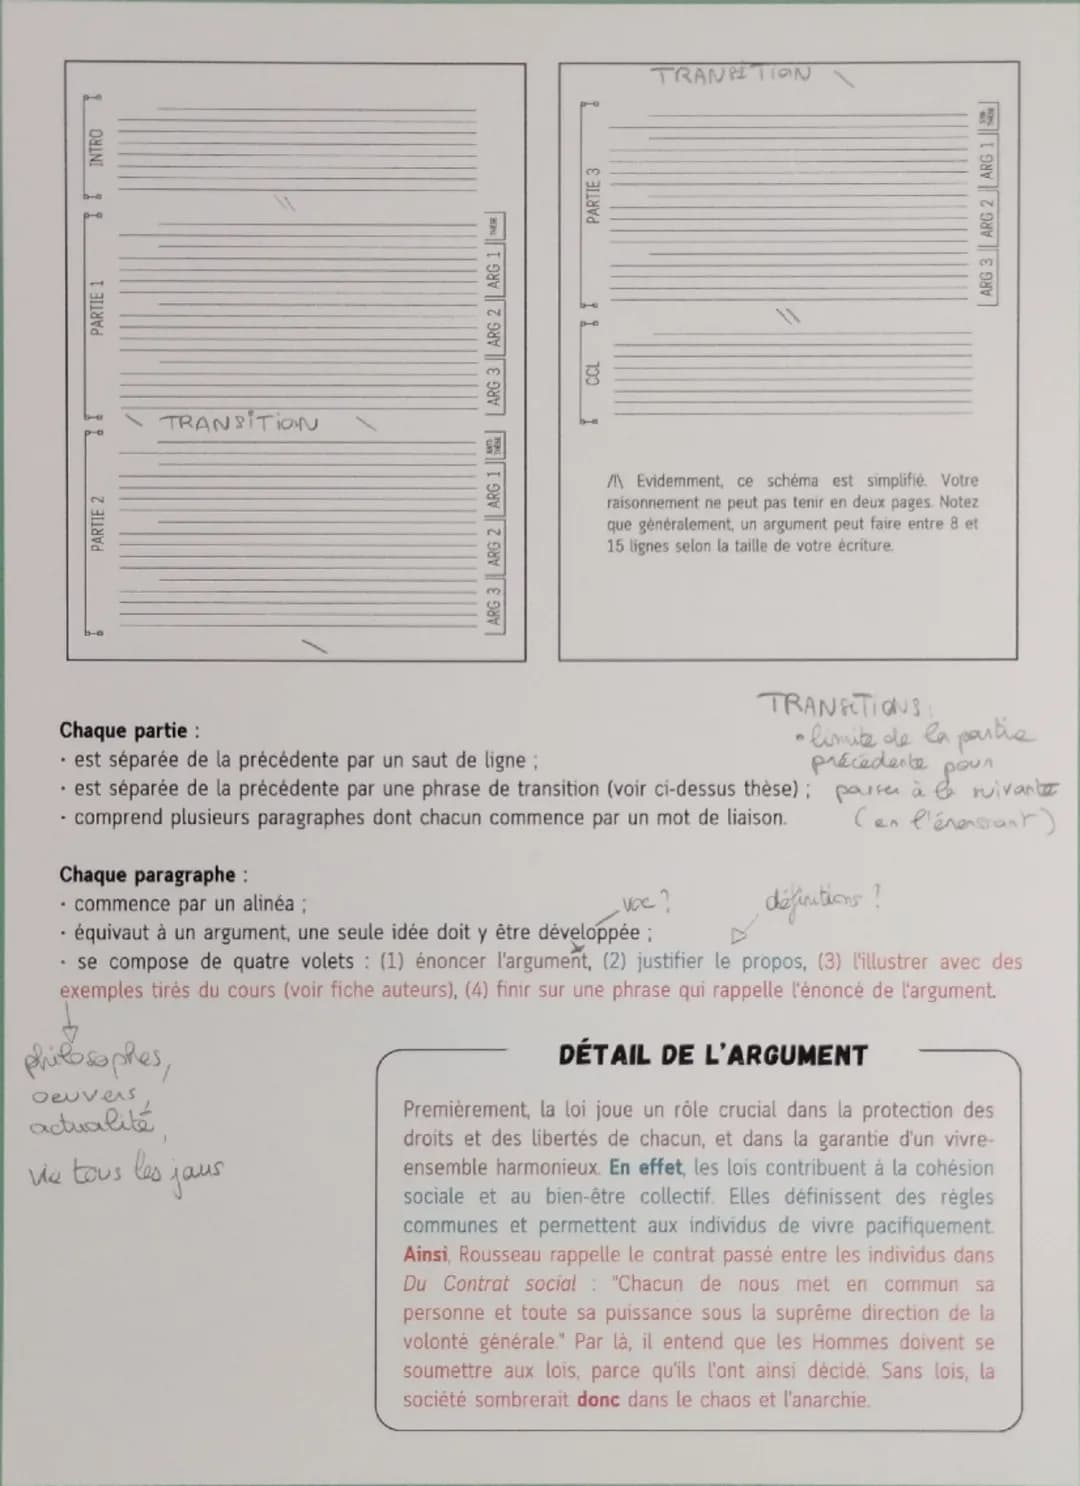 INTRO
PARTIE 1
THÈSE
ARG 1
ARG 2
ARG 3
TRANSITION
PARTIE 2
ANTI-
THÈSE
ARG 1
ARG 2
ARG 3
TRANSITION
PARTIE 3
SYN-
THÈSE
ARG 1
ARG 2
ARG 3
CCL
/!\ Evidemment, ce schéma est simplifié. Votre
raisonnement ne peut pas tenir en deux pages. Notez
que généralement, un argument peut faire entre 8 et
15 lignes selon la taille de votre écriture.
TRANSITIONS:
• limite de la partie
précédente pour
passer à la suivante
(en l'énonçant)
Chaque partie :
· est séparée de la précédente par un saut de ligne ;
· est séparée de la précédente par une phrase de transition (voir ci-dessus thèse) ;
· comprend plusieurs paragraphes dont chacun commence par un mot de liaison.
Chaque paragraphe :
· commence par un alinéa ;
voc ?
définitions !
· équivaut à un argument, une seule idée doit y être développée ;
· se compose de quatre volets : (1) énoncer l'argument, (2) justifier le propos, (3) l'illustrer avec des
exemples tirés du cours (voir fiche auteurs), (4) finir sur une phrase qui rappelle l'énoncé de l'argument.
philosophes,
oeuvers,
actualité,
vie tous les jours
DÉTAIL DE L'ARGUMENT
Premièrement, la loi joue un rôle crucial dans la protection des
droits et des libertés de chacun, et dans la garantie d'un vivre-
ensemble harmonieux. En effet, les lois contribuent à la cohésion
sociale et au bien-être collectif. Elles définissent des règles
communes et permettent aux individus de vivre pacifiquement.
Ainsi, Rousseau rappelle le contrat passé entre les individus dans
Du Contrat social : "Chacun de nous met en commun sa
personne et toute sa puissance sous la suprême direction de la
volonté générale." Par là, il entend que les Hommes doivent se
soumettre aux lois, parce qu'ils l'ont ainsi décidé. Sans lois, la
société sombrerait donc dans le chaos et l'anarchie.